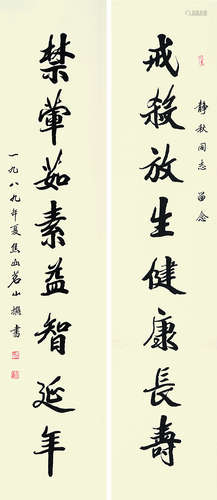 静秋同志 留念
戒殺放生健康長壽
禁葷茹素益智延年
一九八九年夏焦山茗山撰書